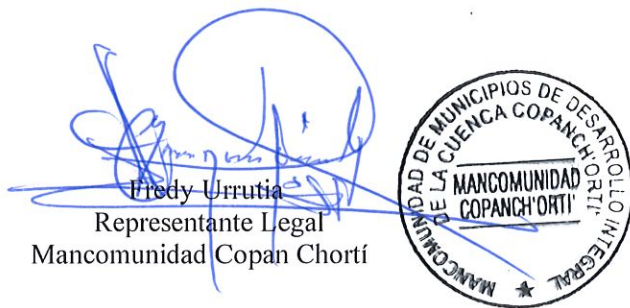 Fredy Urrutia
Representante Legal
Mancomunidad Copan Chortí
MANCOMUNIDAD DE MUNICIPIOS DE DESARROLLO INTEGRAL
DE LA CUENCA COPANCH'ORTI'
MANCOMUNIDAD
COPANCH'ORTI'